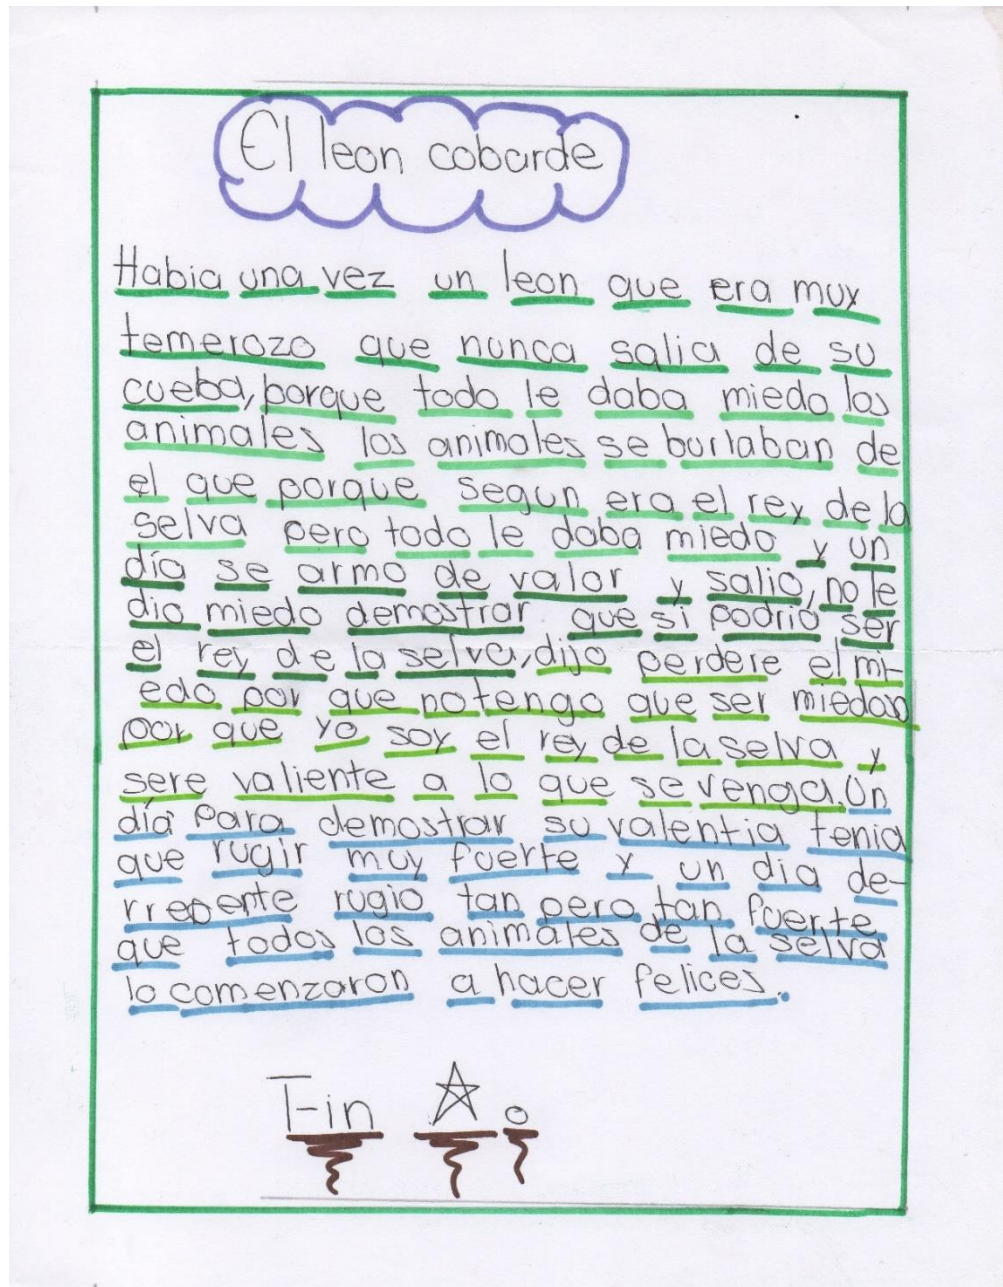 El leon cobarde
Habia una vez un leon que era muy
temerozo que nunca salia de su
cueba, porque todo le daba miedo los
animales los animales se burlaban de
el que porque segun era el rey de la
selva pero todo le daba miedo y un
día se armo de valor y salio, no le
dio miedo demostrar que si podria ser
el rey de la selva, dijo perdere el mi-
edo por que no tengo que ser miedoso
por que yo soy el rey de la selva y
sere valiente a lo que se venga. Un
día para demostrar su valentia tenia
que rugir muy fuerte y un dia de-
rrepente rugio tan pero tan fuerte
que todos los animales de la selva
lo comenzaron a hacer felices.
Fin